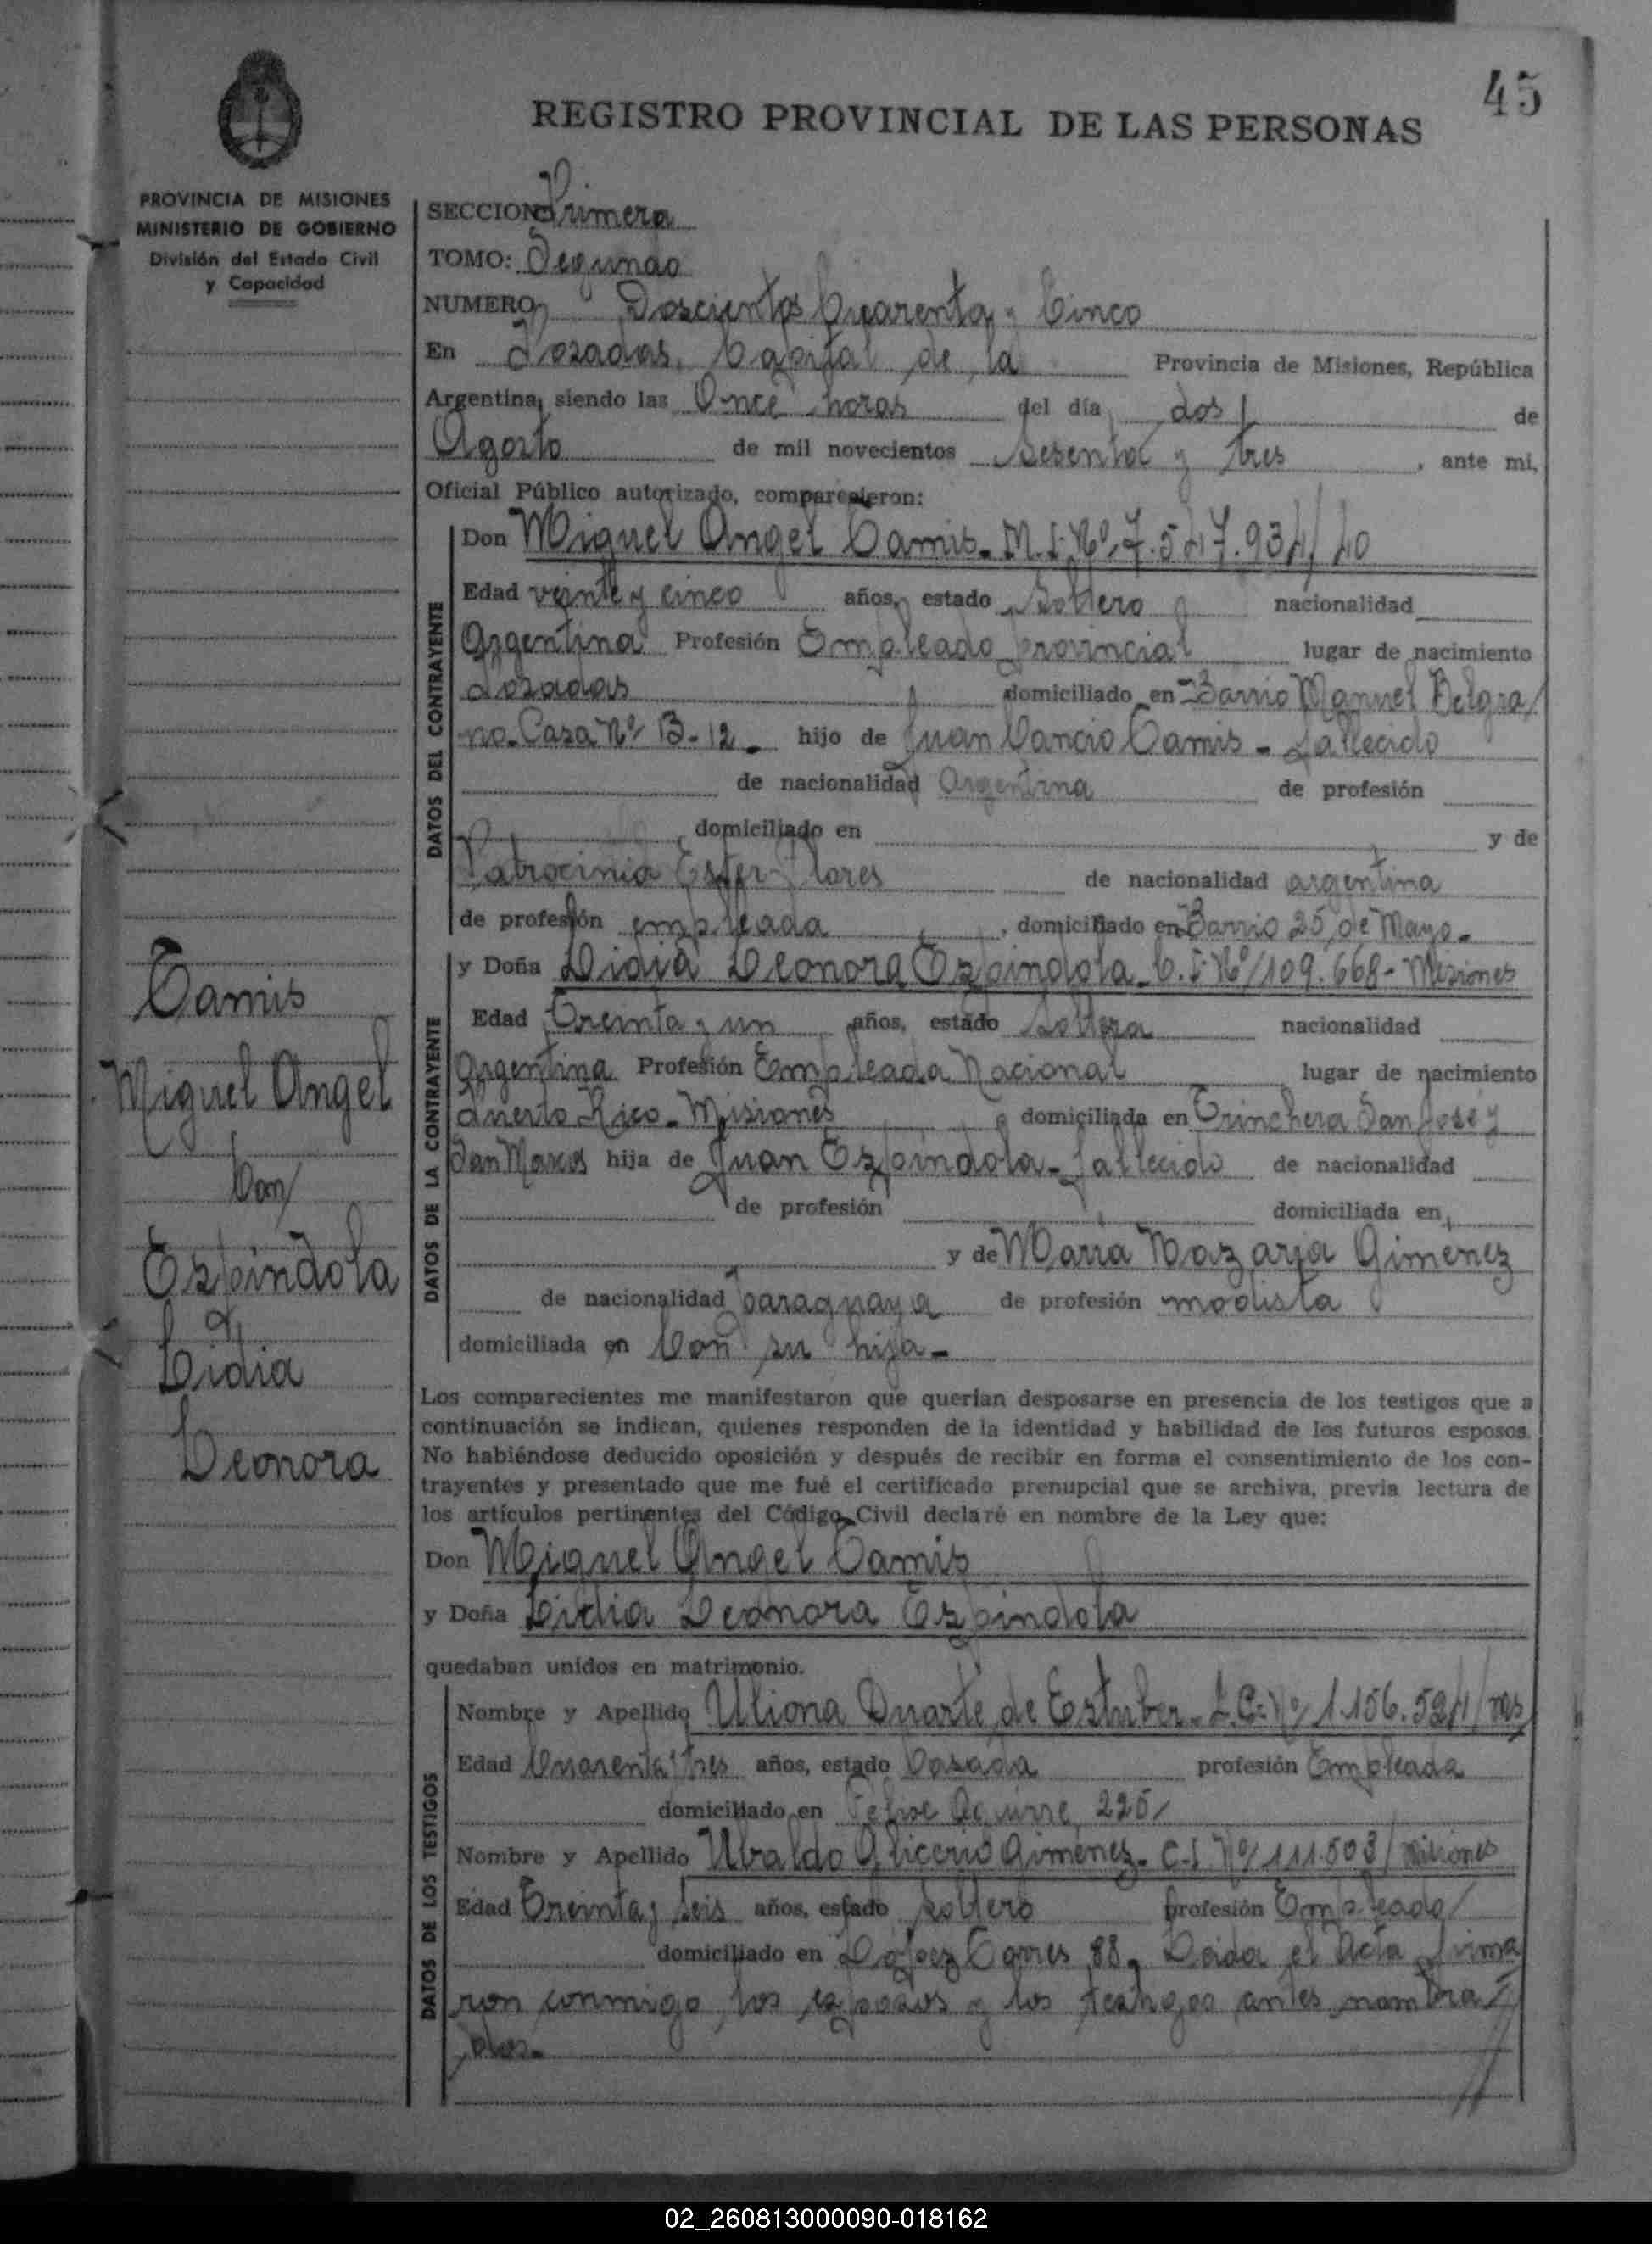 45
REGISTRO PROVINCIAL DE LAS PERSONAS
PROVINCIA DE MISIONES
MINISTERIO DE GOBIERNO
División del Estado Civil
y Capacidad
SECCION Primera
TOMO: Segundo
NUMERO Doscientos Cuarenta y Cinco
En Posadas, Capital de la Provincia de Misiones, República
Argentina, siendo las Once horas del día dos de
Agosto de mil novecientos Sesenta y tres, ante mi,
Oficial Público autorizado, comparecieron:
DATOS DEL CONTRAYENTE
Don Miguel Angel Camis. M.I. Nº 7.547.934/
Edad veinte y cinco años, estado Soltero nacionalidad
Argentina Profesión Empleado provincial lugar de nacimiento
Posadas domiciliado en Barrio Manuel Belgra/
no. Casa Nº B-12. hijo de Juan Cancio Camis - fallecido
de nacionalidad Argentina de profesión
, domiciliado en y de
Patrocinia Ester Flores de nacionalidad argentina
de profesión empleada, domiciliado en Barrio 25 de Mayo.
DATOS DE LA CONTRAYENTE
y Doña Lidia Leonora Espindola. C.I. Nº/109.668- Misiones
Edad Treinta y un años, estado Soltera nacionalidad
Argentina Profesión Empleada Nacional lugar de nacimiento
Puerto Rico - Misiones domiciliada en Trinchera San José y
San Marcos hija de Juan Espindola - fallecido de nacionalidad
de profesión domiciliada en
y de Maria Nazaria Gimenez
de nacionalidad paraguaya de profesión modista
domiciliada en Con su hija -
Camis
Miguel Angel
Con/
Espindola
Lidia
Leonora
Los comparecientes me manifestaron que querían desposarse en presencia de los testigos que a
continuación se indican, quienes responden de la identidad y habilidad de los futuros esposos.
No habiéndose deducido oposición y después de recibir en forma el consentimiento de los con-
trayentes y presentado que me fué el certificado prenupcial que se archiva, previa lectura de
los artículos pertinentes del Código Civil declaré en nombre de la Ley que:
Don Miguel Angel Camis
y Doña Lidia Leonora Espindola
quedaban unidos en matrimonio.
DATOS DE LOS TESTIGOS
Nombre y Apellido Uliona Duarte de Estuber. L.C. Nº 1.156.524/
Edad Cuarenta tres años, estado Casada profesión Empleada
domiciliado en Felix Aguirre 225/
Nombre y Apellido Ubaldo Glicerio Gimenez. C.I. Nº/111.503/ Misiones
Edad Treinta y seis años, estado Soltero profesión Empleado/
domiciliado en Lopez Torres 88. Leida el Acta firma
ron conmigo, los esposos y los testigos antes nombra/
dos.
02_260813000090-018162